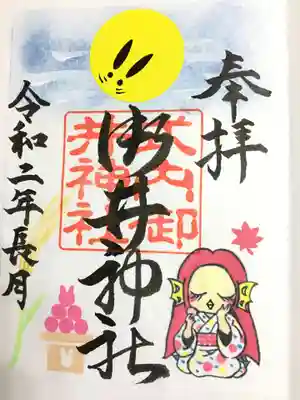 奉拝
式内御
井神社
御井神社
令和二年長月